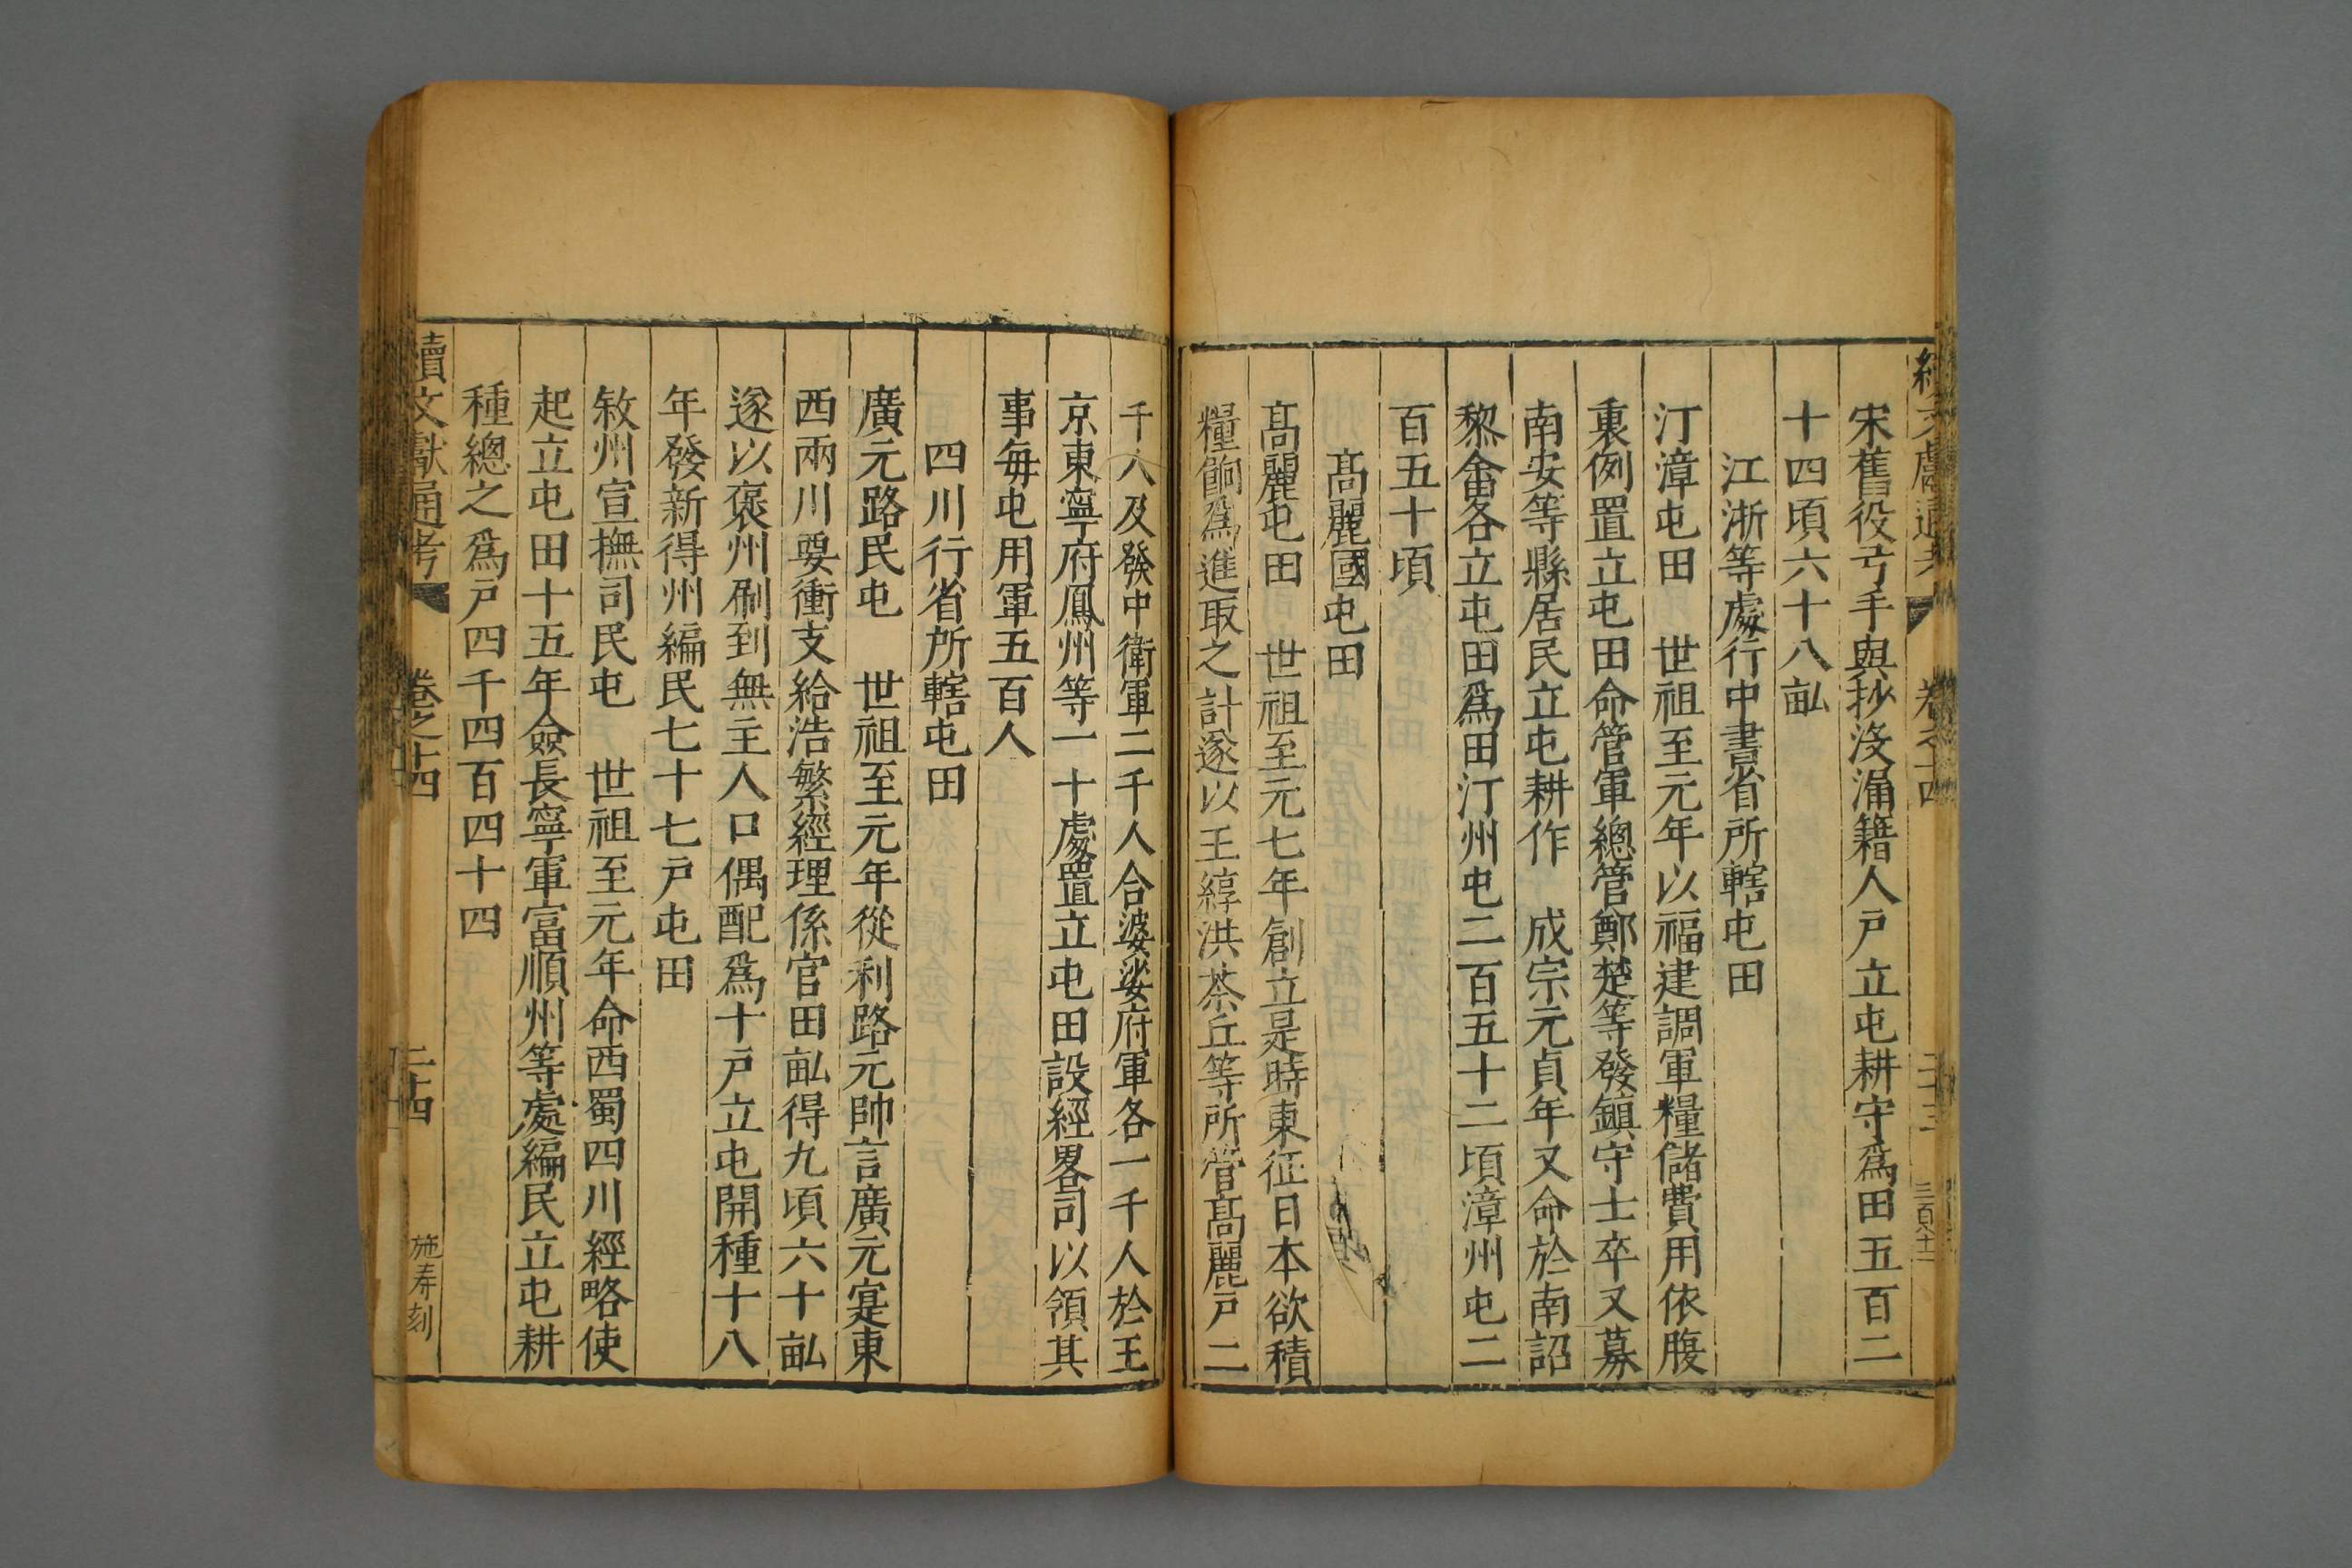 續文獻通考
卷之十四
二十三
宋舊役弓手與抄没漏籍人戸立屯耕守爲田五百二
十四頃六十八畆
江浙等處行中書省所轄屯田
汀漳屯田　世祖至元年以福建調軍糧儲費用依腹
裏例置立屯田命管軍總管鄭楚等發鎮守士卒又募
南安等縣居民立屯耕作　成宗元貞年又命於南詔
黎畬各立屯田爲田汀州屯二百五十二頃漳州屯二
百五十頃
髙麗國屯田
髙麗屯田　世祖至元七年創立是時東征日本欲積
糧餉爲進取之計遂以王綧洪茶丘等所管髙麗戸二
千人及發中衛軍二千人合婆娑府軍各一千人於王
京東寧府鳳州等一十處置立屯田設經畧司以領其
事每屯用軍五百人
四川行省所轄屯田
廣元路民屯　世祖至元年從利路元帥言廣元寔東
西兩川要衝支給浩繁經理係官田畆得九頃六十畆
遂以褒州刷到無主人口偶配爲十戸立屯開種十八
年發新得州編民七十七戸屯田
敘州宣撫司民屯　世祖至元年命西蜀四川經略使
起立屯田十五年僉長寧軍富順州等處編民立屯耕
種總之爲戸四千四百四十四
續文獻通考
卷之十四
二十四
施寿刻